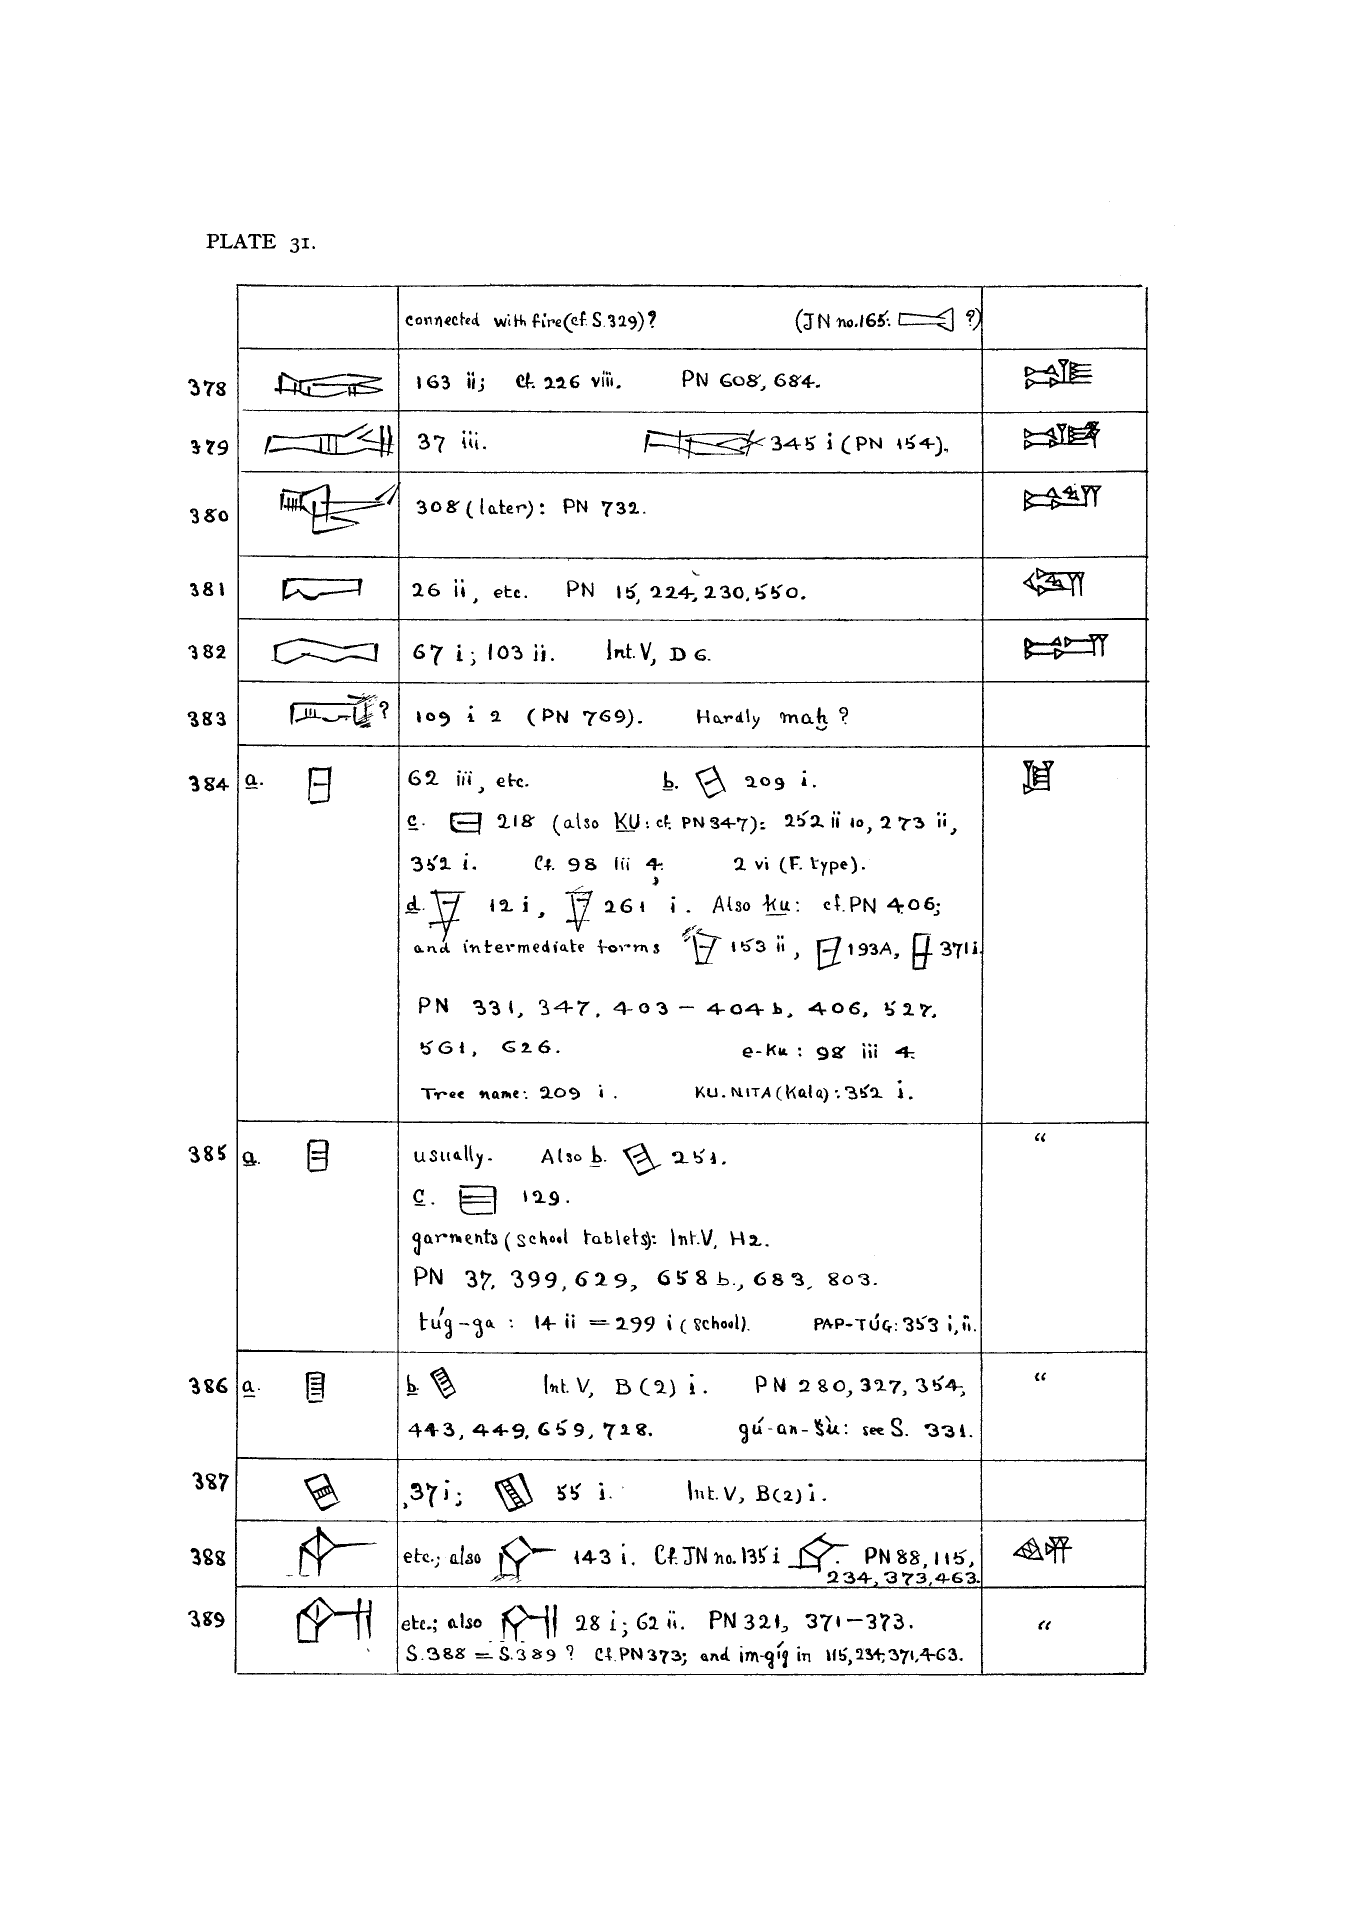 PLATE 31.
connected with fire (cf. S. 329)? (JN no. 165: ?)
378 163 ii; Cf. 226 viii. PN 608, 684.
379 37 iii. 345 i (PN 154).
380 308 (later): PN 732.
381 26 ii, etc. PN 15, 224, 230, 550.
382 67 i; 103 ii. Int. V, D 6.
383 ? 109 i 2 (PN 769). Hardly maḫ ?
384 a. 62 iii, etc. b. 209 i.
c. 218 (also KU: cf. PN 347): 252 ii 10, 273 ii,
352 i. Cf. 98 iii 4; 2 vi (F. type).
d. 12 i, 261 i. Also ku: cf. PN 406;
and intermediate forms 153 ii, 193A, 371 i.
PN 331, 347, 403 – 404 b, 406, 527,
561, 626. e-Ku: 98 iii 4.
Tree name: 209 i. KU.NITA (Kala): 352 i.
385 a. usually. Also b. 251. "
c. 129.
garments (school tablets): Int. V, H2.
PN 37, 399, 629, 658 b., 683, 803.
túg-ga: 14 ii = 299 i (school). PAP-TÚG: 353 i, ii.
386 a. b. Int. V, B (2) i. PN 280, 327, 354, "
443, 449, 659, 728. gú-an-šù: see S. 331.
387 37 i; 55 i. Int. V, B(2) i.
388 etc.; also 143 i. Cf. JN no. 135 i . PN 88, 115,
234, 373, 463.
389 etc.; also 28 i; 62 ii. PN 321, 371–373. "
S. 388 = S. 389 ? Cf. PN 373; and im-gíg in 115, 234, 371, 463.